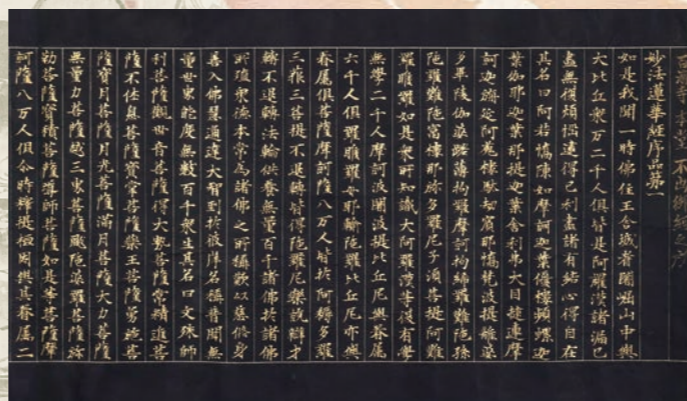 妙法蓮華經序品第一
如是我聞一時佛住王舍城耆闍崛山中與
大比丘衆万二千人俱皆是阿羅漢諸漏已
盡無復煩惱逮得己利盡諸有結心得自在
其名曰阿若憍陳如摩訶迦葉優樓頻螺迦
葉伽耶迦葉那提迦葉舍利弗大目揵連摩
訶迦旃延阿㝹樓馱劫賓那憍梵波提離婆
多畢陵伽婆蹉薄拘羅摩訶拘絺羅難陀孫
陀羅難陀富樓那弥多羅尼子湏菩提阿難
羅睺羅如是衆所知識大阿羅漢等復有學
無學二千人摩訶波闍波提比丘尼與眷属
六千人俱羅睺羅母耶輸陀羅比丘尼亦與
眷属俱菩薩摩訶薩八万人皆於阿耨多羅
三藐三菩提不退轉皆得陀羅尼樂說辯才
轉不退轉法輪供養無量百千諸佛於諸佛
所殖衆德本常為諸佛之所稱歎以慈修身
善入佛慧通達大智到於彼岸名稱普聞無
量世界能度無數百千衆生其名曰文殊師
利菩薩觀世音菩薩得大勢菩薩常精進菩
薩不休息菩薩寶掌菩薩藥王菩薩勇施菩
薩寶月菩薩月光菩薩滿月菩薩大力菩薩
無量力菩薩越三界菩薩颰陀婆羅菩薩弥
勒菩薩寶積菩薩導師菩薩如是等菩薩摩
訶薩八万人俱尒時釋提桓因與其眷属二